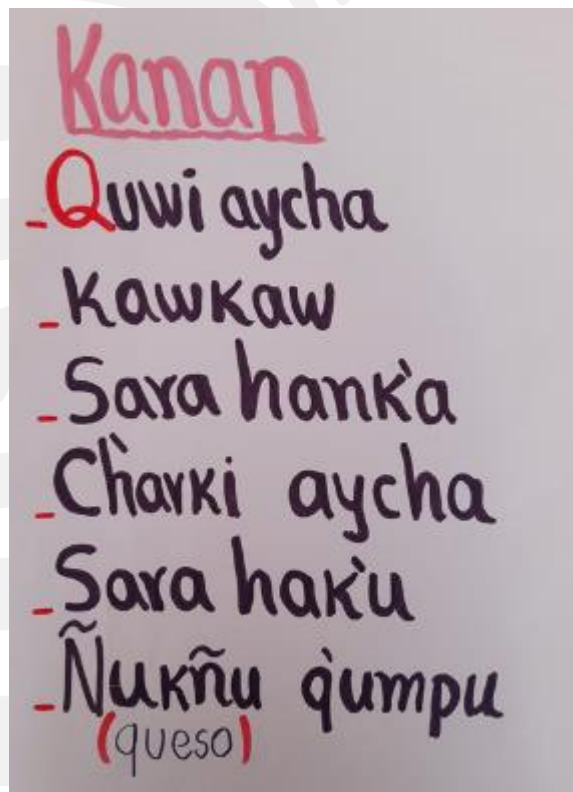 Kanan
- Quwi aycha
- Kawkaw
- Sara hank'a
- Ch'arki aycha
- Sara hak'u
- Ñukñu q'umpu
(queso)